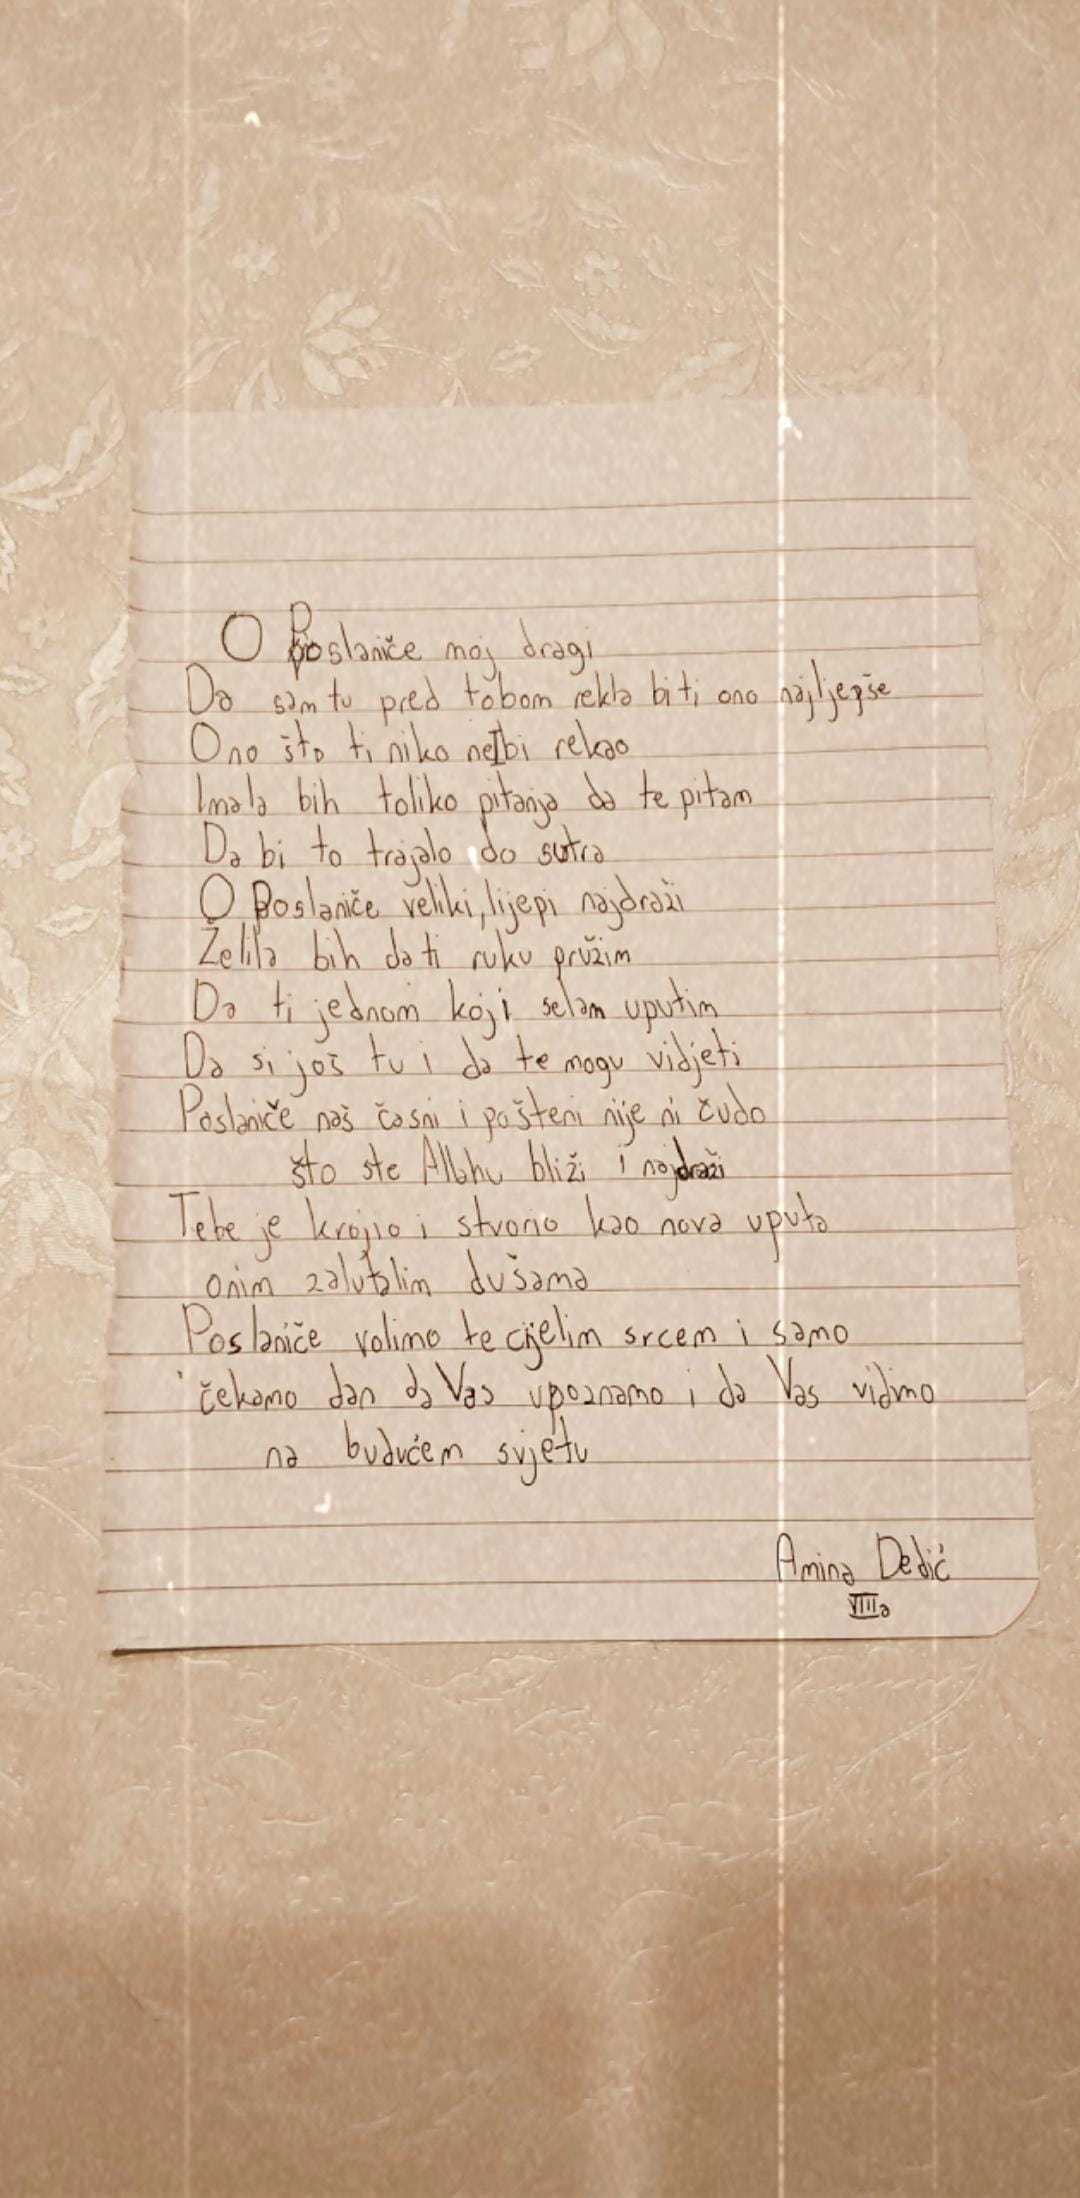 O Poslaniče moj dragi
Da sam tu pred tobom rekla bi ti ono najljepše
Ono što ti niko ne bi rekao
Imala bih toliko pitanja da te pitam
Da bi to trajalo do sutra
O Poslaniče veliki, lijepi najdraži
Želila bih da ti ruku pružim
Da ti jednom koji selam uputim
Da si još tu i da te mogu vidjeti
Poslaniče naš časni i pošteni nije ni čudo
što ste Allahu bliži i najdraži
Tebe je krojio i stvorio kao nova uputa
onim zalutalim dušama
Poslaniče volimo te cijelim srcem i samo
čekamo dan da Vas upoznamo i da Vas vidimo
na budućem svjetu
Amina Dedić
VIIIa